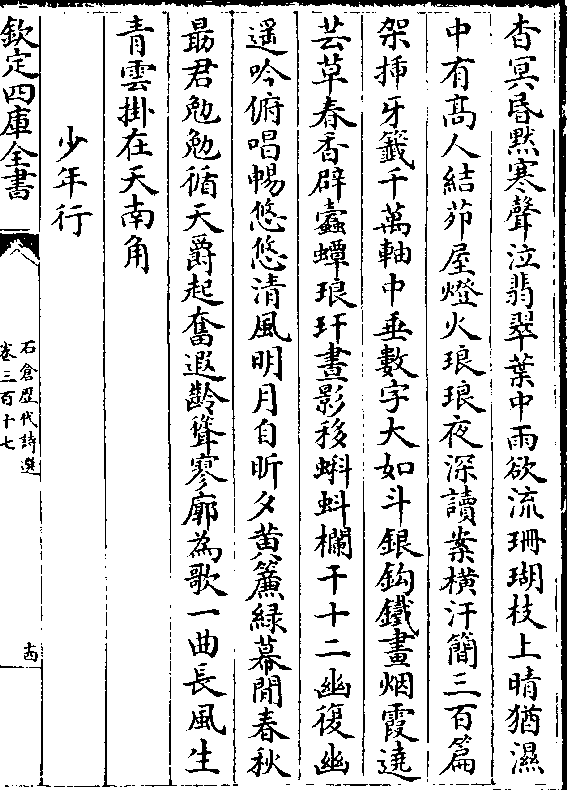 杳冥昏黙寒聲泣翡翠葉中雨欲流珊瑚枝上晴猶濕
中有髙人結茆屋燈火琅琅夜深讀案橫汗簡三百篇
架揷牙籤千萬軸中垂數字大如斗銀鈎鐵畫烟霞遶
芸草春香辟蠧蟫琅玕晝影移蝌蚪欄干十二幽復幽
遥吟俯唱暢悠悠清風明月自昕夕黄簾緑幕閒春秋
朂君勉勉循天爵起奮遐齡聳寥廓為歌一曲長風生
青雲掛在天南角
少年行
欽定四庫全書
石倉歴代詩選
卷三百十七